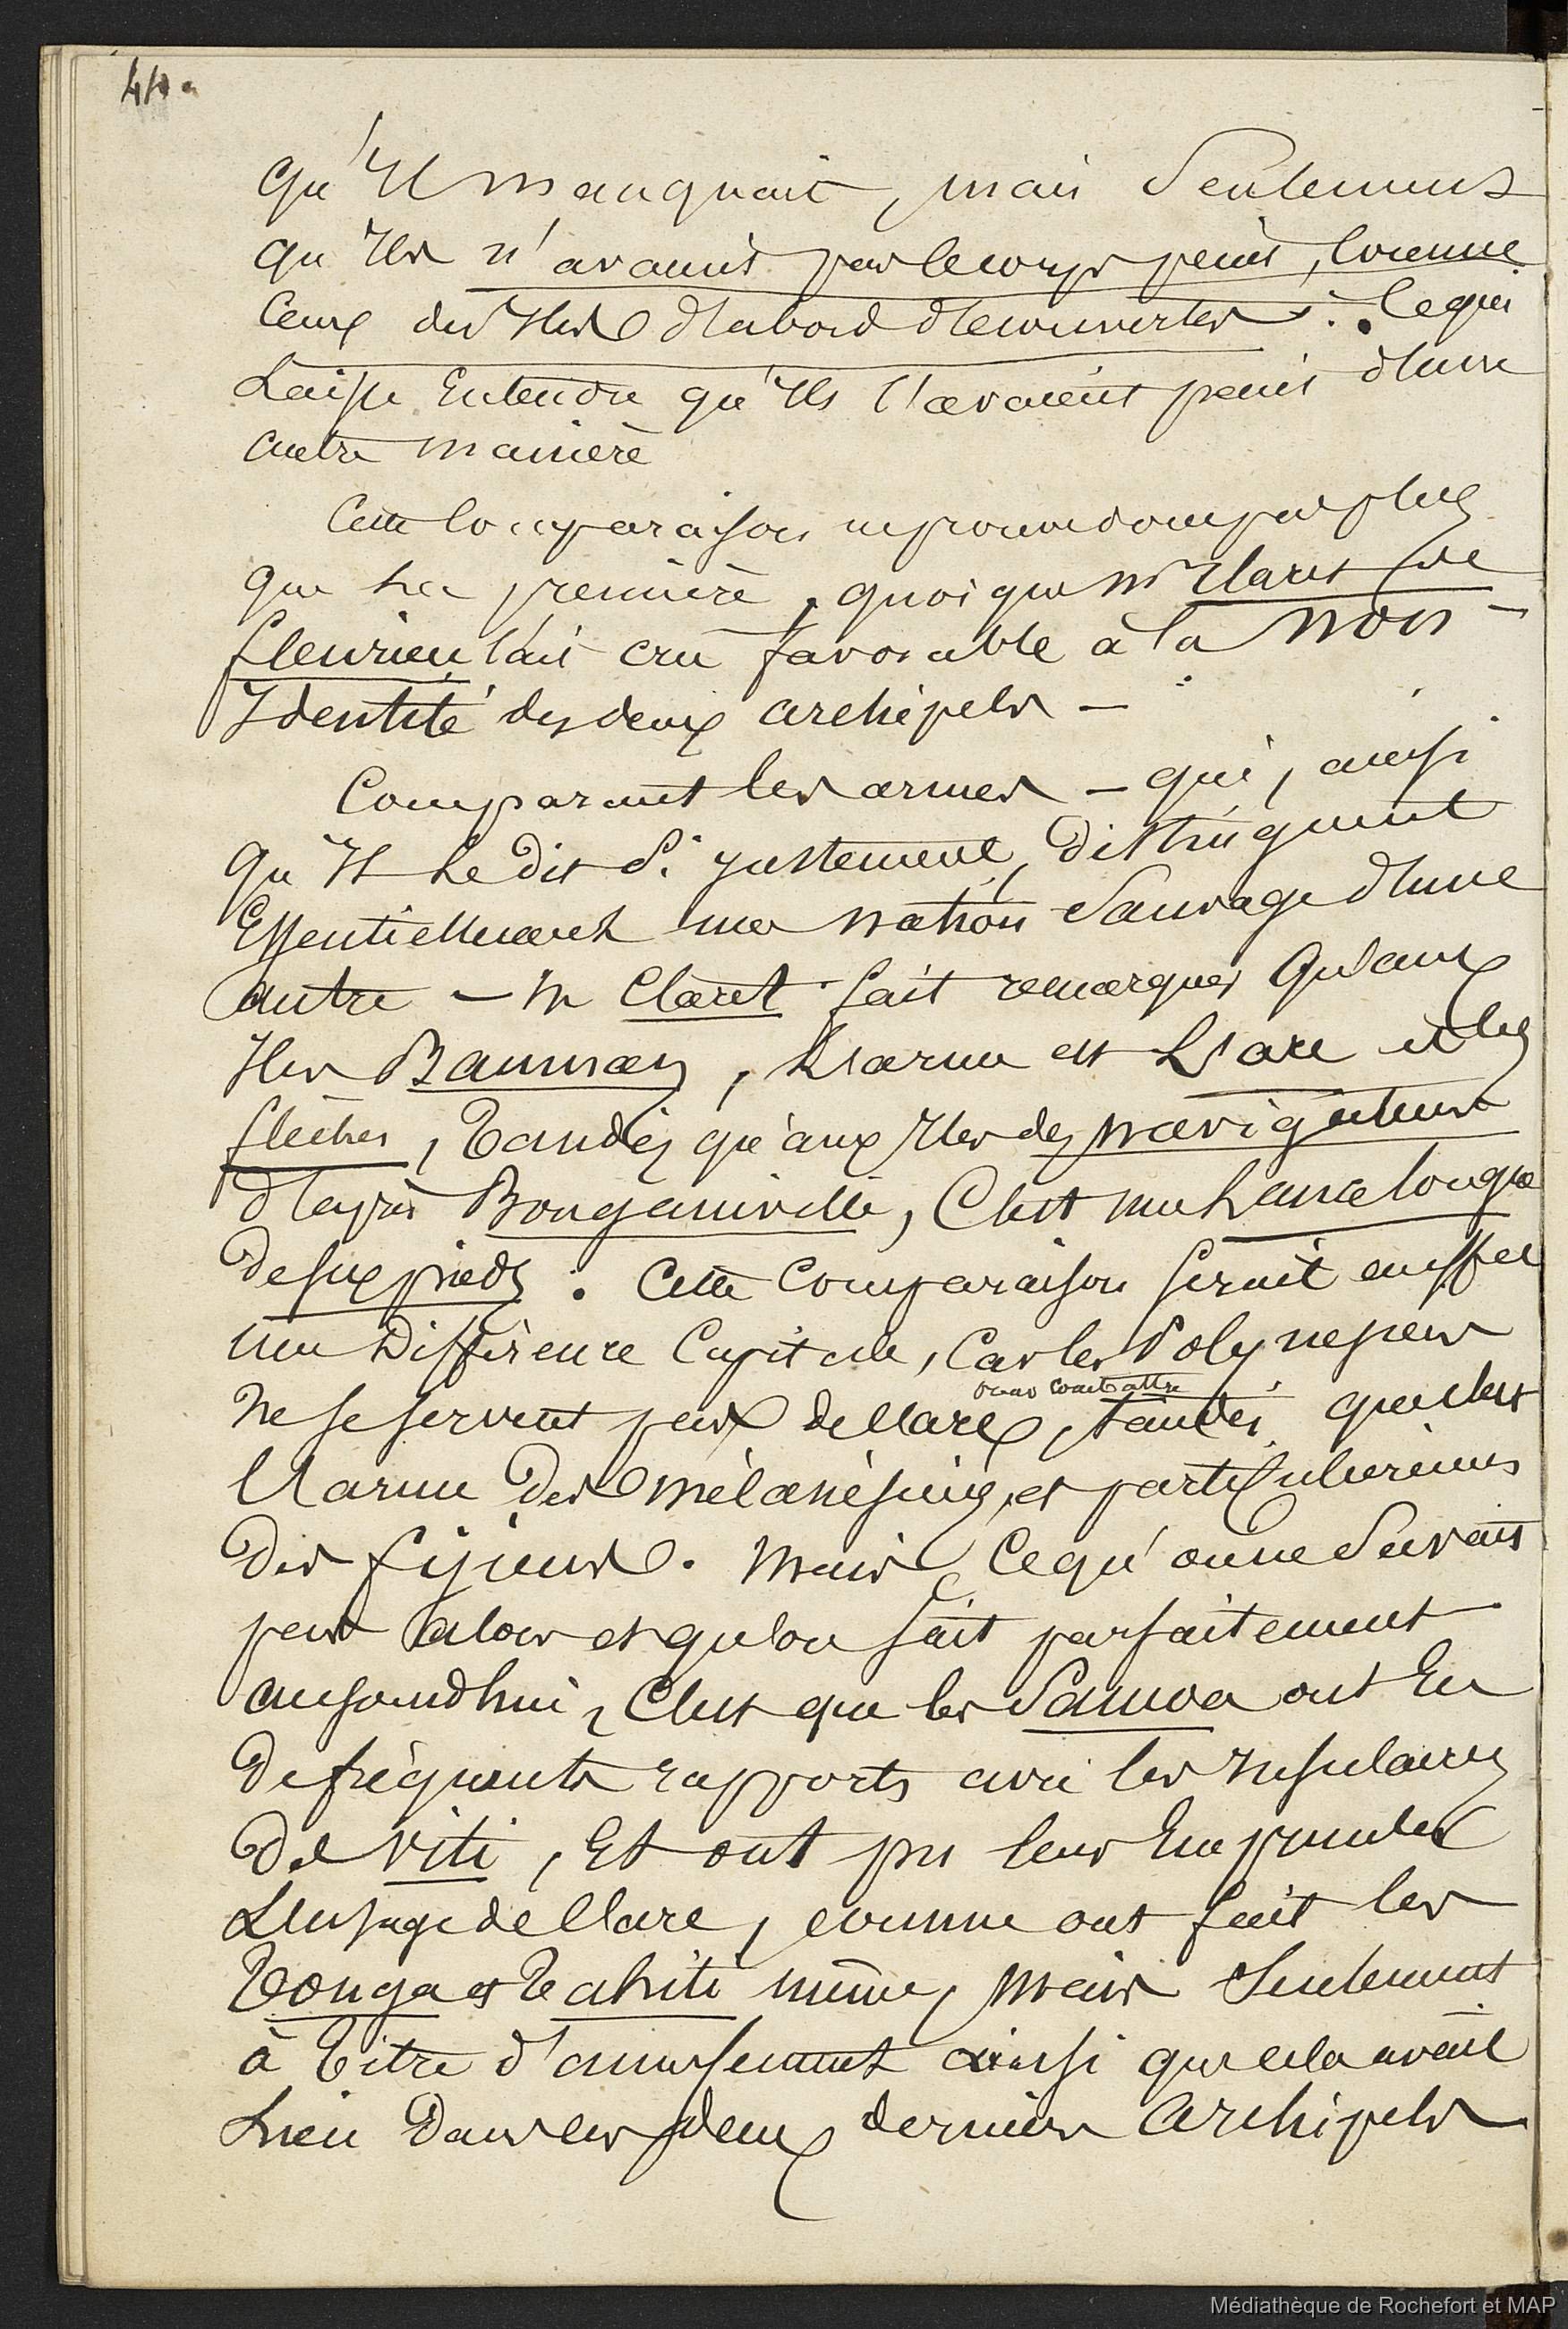 qu'Il manquait, mais Seulement
qu'Ils n'avaient pas le corps peint, comme
Ceux des Iles d'abord découvertes : Ce qui
Laisse Entendre qu'Ils l'avaient peint d'une
autre manière
Cette Comparaison ne prouve donc pas plus
que La première, quoique Mr Claret de
fleurieu l'ait crû favorable à la Non-
Identité des deux archipels -
Comparant les armes - qui, ainsi
qu'Il Le dit Si justement, Distinguent
Essentiellement une nation Sauvage d'une
autre - M Claret fait remarquer qu'aux
Iles Bauman, L'arme est L'arc et les
flèches, Tandis qu'aux Iles des navigateurs
d'après Bougainville, C'est une Lance longue
de six pieds. Cette Comparaison serait en effet
une Différence Capitale, Car les Polynesiens
pour combattre
Ne se servent pas de l'arc, tandis que c'est
l'arme Des Mélanésiens, et particulièrement
Des fijiens. Mais Ce qu'on ne Savait
pas alors et qu'on sait parfaitement
aujourd'hui, C'est que les Samoa ont Eu
De fréquents rapports avec les Insulaires
De Viti, Et ont pu leur Emprunter
L'usage de l'arc, comme ont fait les
Tonga et Tahiti même, Mais Seulement
à Titre d'amusement ainsi que cela avait
Lieu Dans les deux derniers Archipels
Médiathèque de Rochefort et MAP